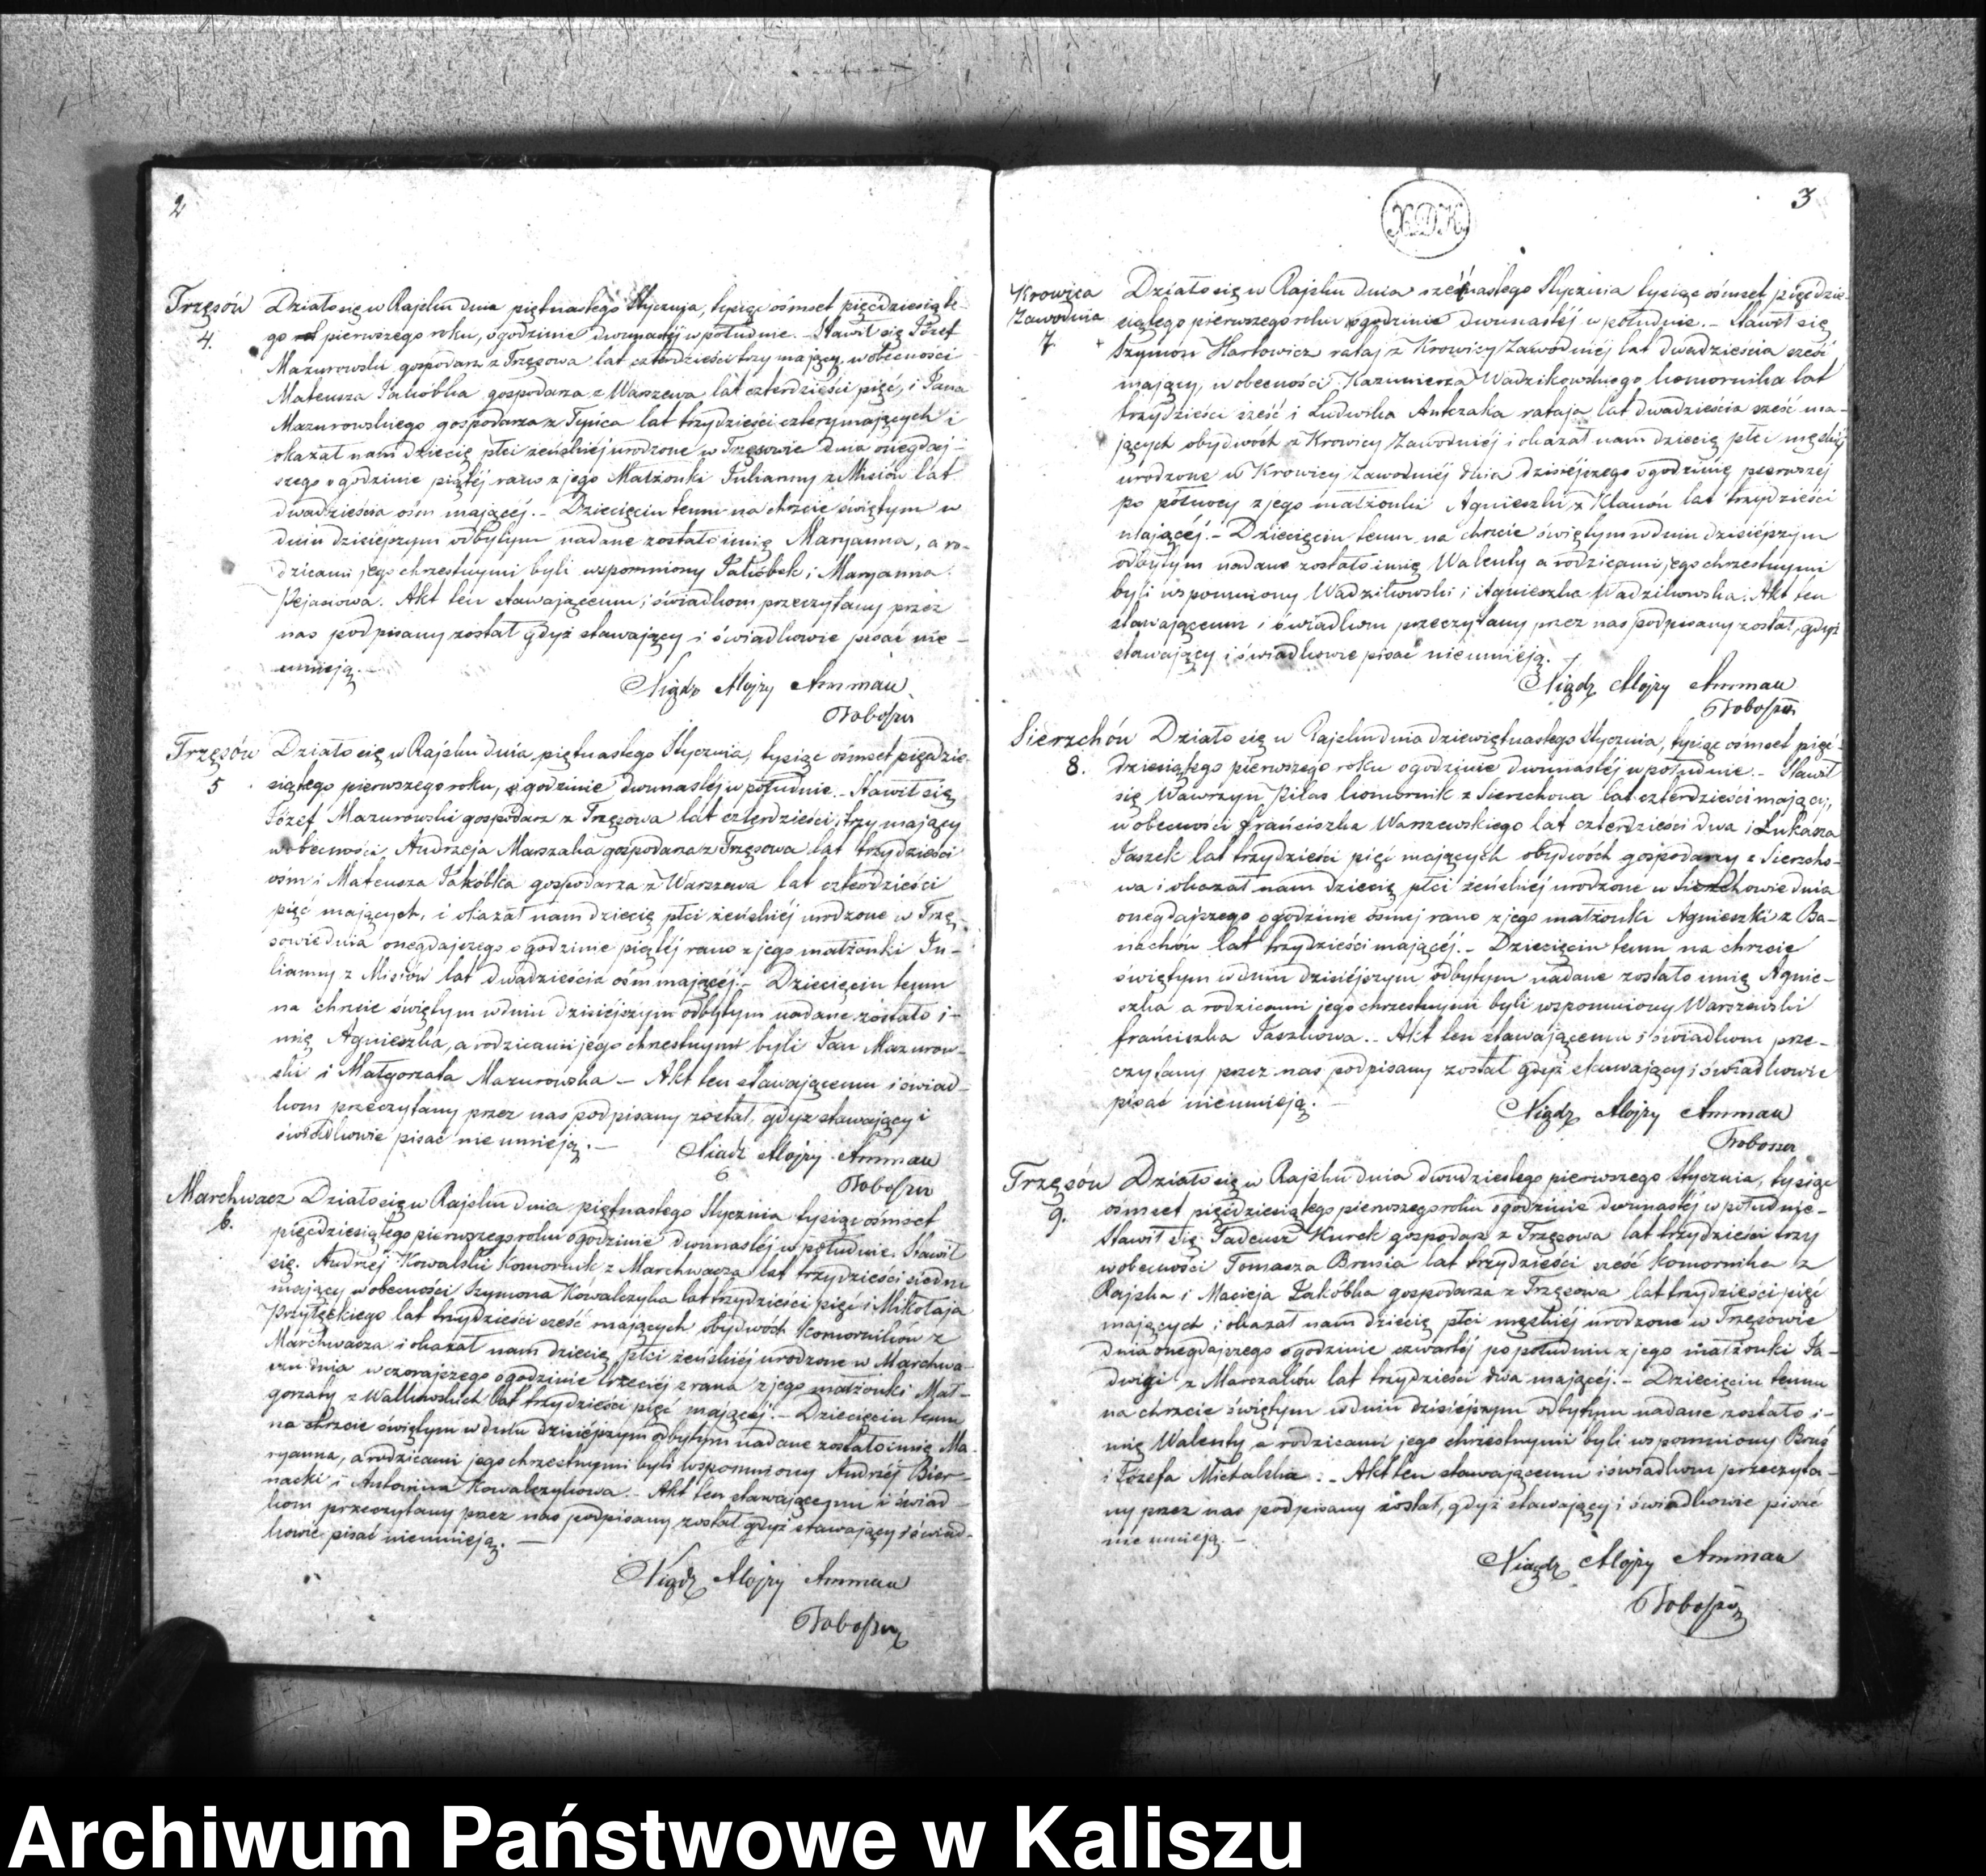 2
Trzęsów Działo się w Rajsku dnia piętnastego Stycznia, tysiąc ośmset pięćdziesiąte-
4. go pierwszego roku, o godzinie dwunastéj w południe. – Stawił się Józef
Mazurowski gospodarz z Trzęsowa lat czterdzieści trzy mający, w obecności
Mateusza Jakóbka gospodarza z Warszewa lat czterdzieści pięć, i Jana
Mazurowskiego gospodarza z Tyńca lat trzydzieści cztery mających i
okazał nam dziecię płci żeńskiéj urodzone w Trzęsowie dnia onegdaj-
szego o godzinie piątéj rano z jego Małżonki Julianny z Misiów lat
dwadzieścia ośm mającéj. – Dziecięciu temu na chrzcie świętym w
dniu dzisiejszym odbytym nadane zostało imię Maryanna, a ro-
dzicami jego chrzestnymi byli wspomniony Jakóbek i Maryanna
Pejasiowa. Akt ten stawającemu i świadkom przeczytany przez
nas podpisany został gdyż stawający i świadkowie pisać nie
umieją. –
Xiądz Alojzy Amman
Proboszcz
Trzęsów Działo się w Rajsku dnia piętnastego Stycznia, tysiąc ośmset pięćdzie-
5 siątego pierwszego roku, o godzinie dwunastéj w południe. – Stawił się
Józef Mazurowski gospodarz z Trzęsowa lat czterdzieści trzy mający
w obecności Andrzeja Marszała gospodarza z Trzęsowa lat trzydzieści
ośm i Mateusza Jakóbka gospodarza z Warszewa lat czterdzieści
pięć mających, i okazał nam dziecię płci żeńskiéj urodzone w Trzę-
sowie dnia onegdajszego o godzinie piątéj rano z jego małżonki Ju-
lianny z Misiów lat dwadzieścia ośm mającéj. – Dziecięciu temu
na chrzcie świętym w dniu dzisiejszym odbytym nadane zostało i-
mię Agnieszka, a rodzicami jego chrzestnymi byli Jan Mazurow-
ski i Małgorzata Mazurowska – Akt ten stawającemu i świad-
kom przeczytany przez nas podpisany został, gdyż stawający i
świadkowie pisać nie umieją. –
Xiądz Alojzy Amman
Proboszcz
Marchwacz Działo się w Rajsku dnia piętnastego Stycznia tysiąc ośmset
6. pięćdziesiątego pierwszego roku o godzinie dwunastéj w południe. Stawił
się Andrzéj Kowalski Komornik z Marchwacza lat trzydzieści siedm
mający w obecności Szymona Kowalczyka lat trzydzieści pięć i Mikołaja
Przyłęckiego lat trzydzieści sześć mających obydwóch Komorników z
Marchwacza i okazał nam dziecię płci żeńskiéj urodzone w Marchwa-
czu dnia wczorajszego o godzinie trzeciéj z rana z jego małżonki Mał-
gorzaty z Walkowskich lat trzydzieści pięć mającéj. – Dziecięciu temu
na chrzcie świętym w dniu dzisiéjszym odbytym nadane zostało imię Ma-
ryanna, a rodzicami jego chrzestnymi byli wspomniony Andrzéj Bier-
nacki i Antonina Kowalczykowa. – Akt ten stawającemu i świad-
kom przeczytany przez nas podpisany został gdyż stawający i świad-
kowie pisać nieumieją. –
Xiądz Alojzy Amman
Proboszcz
3
Krowica Działo się w Rajsku dnia szesnastego Stycznia tysiąc ośmset pięćdzie-
Zawodnia siątego pierwszego roku o godzinie dwunastéj w południe. – Stawił się
7 Szymon Harłowicz rataj z Krowicy Zawodniéj lat dwadzieścia sześć
mający, w obecności Kazimierza Wadzikowskiego komornika lat
trzydzieści sześć i Ludwika Antczaka rataja lat dwadzieścia sześć ma-
jących obydwóch z Krowicy Zawodniéj i okazał nam dziecię płci męskiéj
urodzone w Krowicy Zawodniéj dnia dzisiéjszego o godzinie pierwszéj
po północy z jego małżonki Agnieszki z Klanów lat trzydzieści
mającéj. – Dziecięciu temu na chrzcie świętym w dniu dzisiéjszym
odbytym nadane zostało imię Walenty a rodzicami jego chrzestnymi
byli wspomniony Wadzikowski i Agnieszka Wadzikowska. Akt ten
stawającemu i świadkom przeczytany przez nas podpisany został, gdyż
stawający i świadkowie pisać nieumieją.
Xiądz Alojzy Amman
Proboszcz
Sierzchów Działo się w Rajsku dnia dziewiętnastego Stycznia, tysiąc ośmset pięć-
8. dziesiątego pierwszego roku o godzinie dwunastéj w południe. – Stawił
się Wawrzyn Pilas komornik z Sierzchowa lat czterdzieści mający,
w obecności Franciszka Warszewskiego lat czterdzieści dwa i Łukasza
Jaszek lat trzydzieści pięć mających obydwóch gospodarzy z Sierzcho-
wa i okazał nam dziecię płci żeńskiéj urodzone w Sierzchowie dnia
onegdajszego o godzinie ósmej rano z jego małżonki Agnieszki z Ba-
nachów lat trzydzieści mającéj. – Dziecięciu temu na chrzcie
świętym w dniu dzisiéjszym odbytym nadane zostało imię Agnie-
szka a rodzicami jego chrzestnymi byli wspomniony Warszewski
Franciszka Jaszkowa. – Akt ten stawającemu i świadkom prze-
czytany przez nas podpisany został gdyż stawający i świadkowie
pisać nieumieją. –
Xiądz Alojzy Amman
Proboszcz
Trzęsów Działo się w Rajsku dnia dwudziestego pierwszego Stycznia, tysiąc
9. ośmset pięćdziesiątego pierwszego roku o godzinie dwunastéj w południe –
Stawił się Tadeusz Kurek gospodarz z Trzęsowa lat trzydzieści trzy
w obecności Tomasza Brusia lat trzydzieści sześć Komornika z
Rajska i Macieja Jakóbka gospodarza z Trzęsowa lat trzydzieści pięć
mających i okazał nam dziecię płci męskiéj urodzone w Trzęsowie
dnia onegdajszego o godzinie czwartéj po południu z jego małżonki Ja-
dwigi z Marczałów lat trzydzieści dwa mającéj. – Dziecięciu temu
na chrzcie świętym w dniu dzisiéjszym odbytym nadane zostało i-
mię Walenty a rodzicami jego chrzestnymi byli wspomniony Bruś
i Józefa Michalska. – Akt ten stawającemu i świadkom przeczyta-
ny przez nas podpisany został, gdyż stawający i świadkowie pisać
nie umieją. –
Xiądz Alojzy Amman
Proboszcz
Archiwum Państwowe w Kaliszu